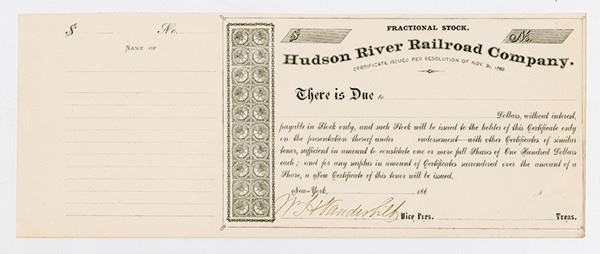 $ No.
Name of
FRACTIONAL STOCK.
$ No.
Hudson River Railroad Company.
CERTIFICATE ISSUED PER RESOLUTION OF NOV.
There is Due to
Dollars, without interest,
payable in Stock only, and such Stock will be issued to the holder of this Certificate only
on the presentation thereof under endorsement—with other Certificates of similar
tenor, sufficient in amount to constitute one or more full Shares of One Hundred Dollars
each; and for any surplus in amount of Certificates surrendered over the amount of a
Share, a New Certificate of this tenor will be issued.
New-York, 186
W. H. Vanderbilt Vice Pres. Treas.